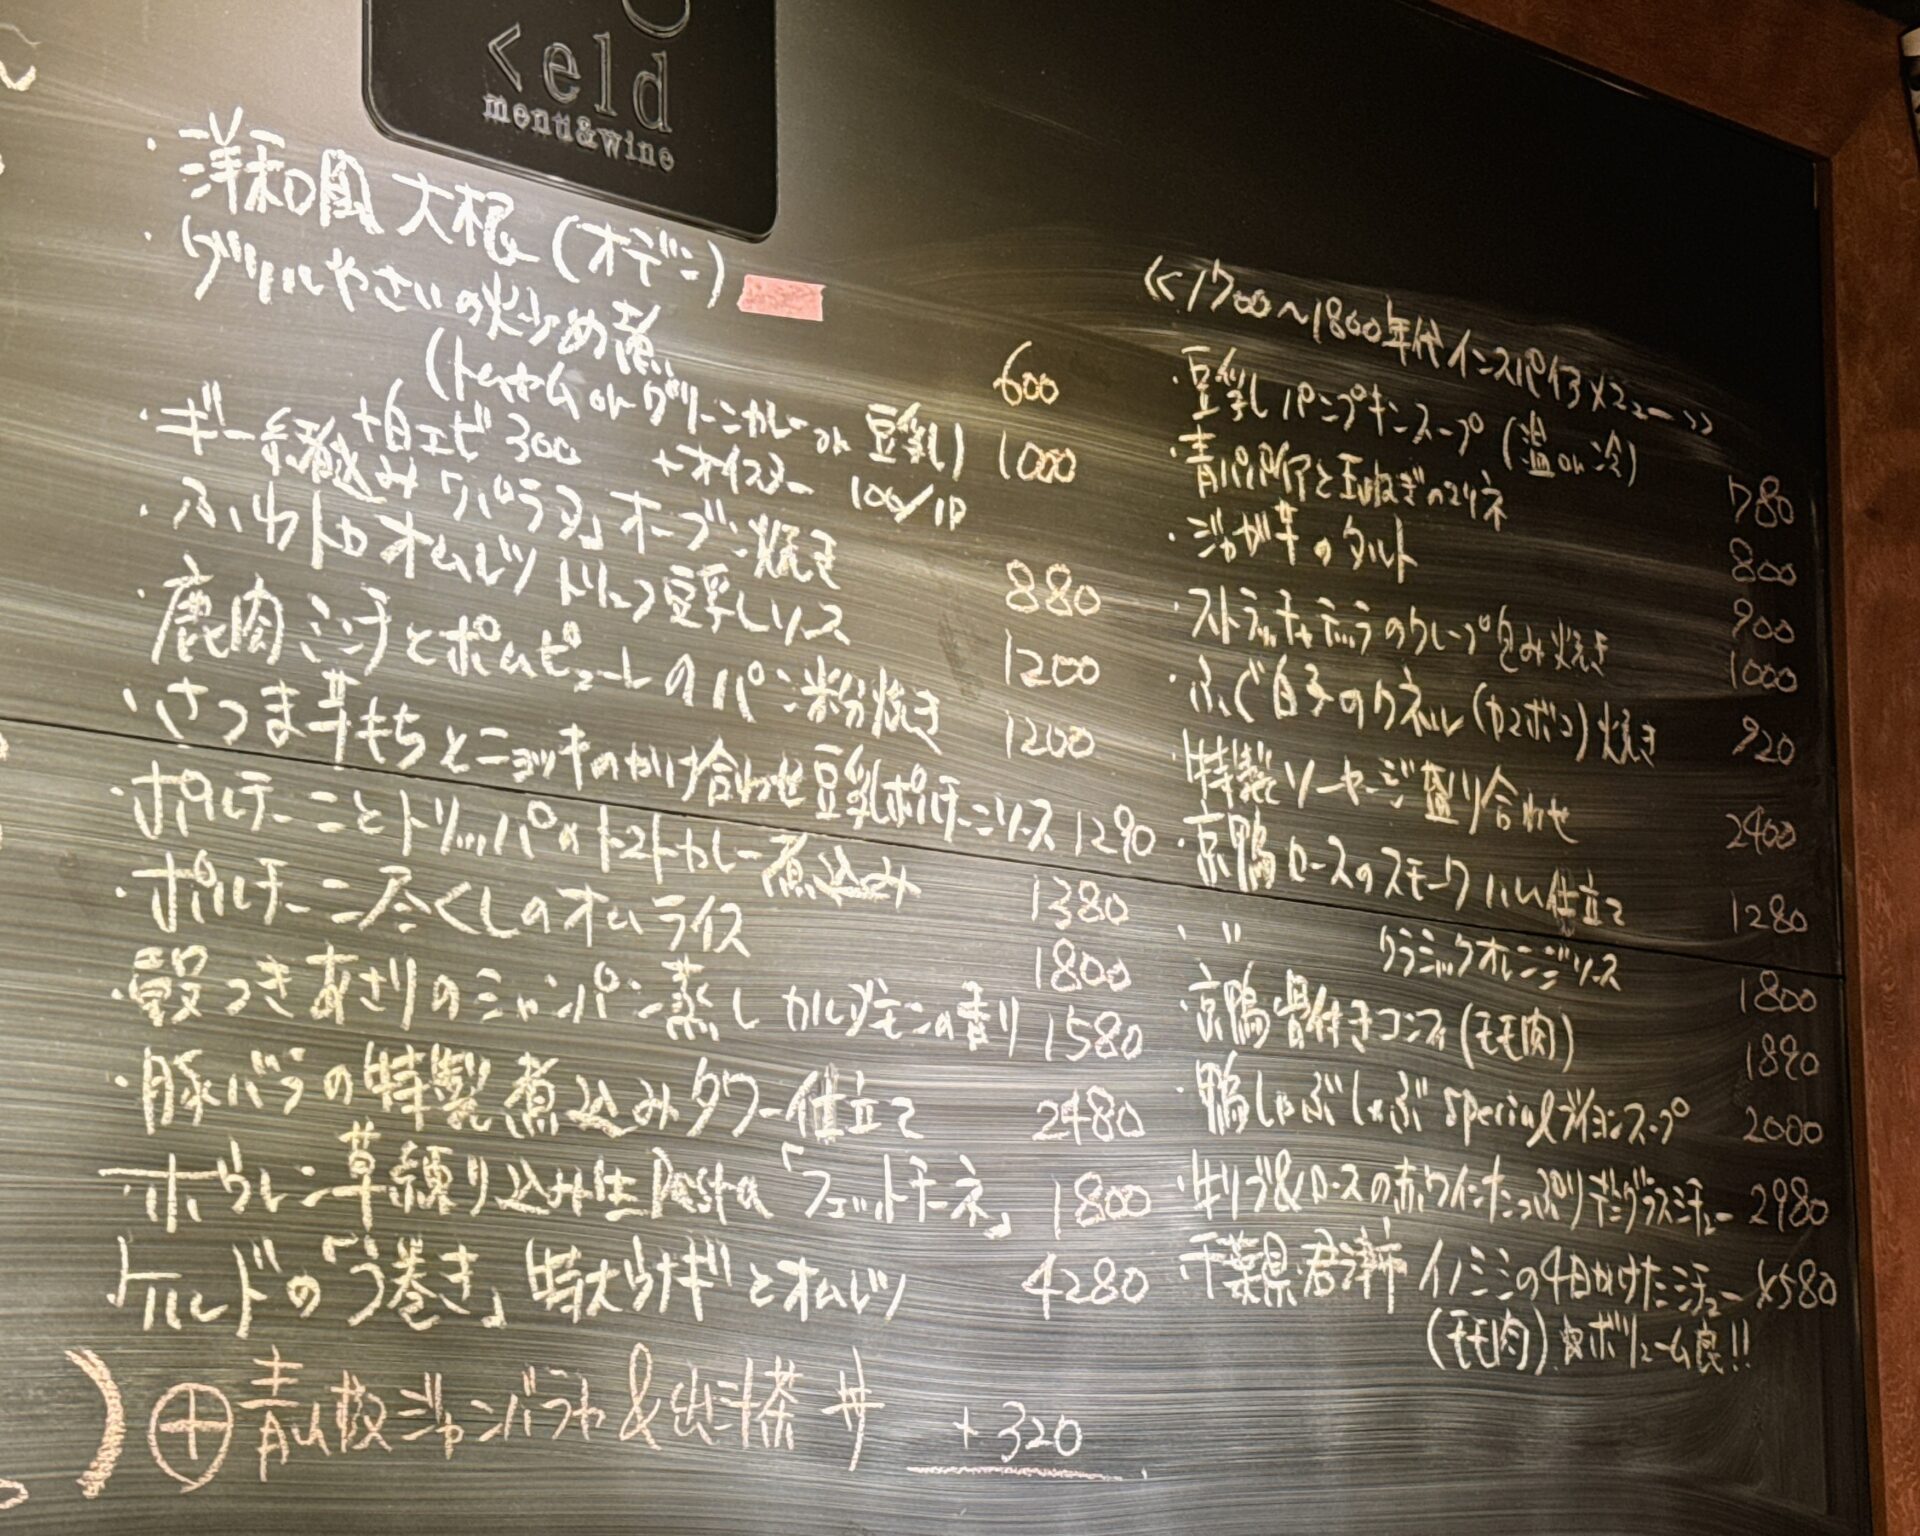 <eld
menu&wine
・洋和風 大根 (オデン)
600
・グリルやさいの炒め煮
(トムヤムorグリーンカレーor豆乳) 1000
+白エビ300 +オイスター 100/1P
・ギー練込み「パラタ」オーブン焼き 880
・ふわトロオムレツ トリュフ豆乳ソース 1200
・鹿肉ミンチとポムピューレのパン粉焼き 1200
・さつま芋もちとニョッキのかけ合わせ豆乳ポルチーニソース 1290
・ポルチーニとトリッパのトマトカレー煮込み 1380
・ポルチーニ尽くしのオムライス 1800
・殻つきあさりのシャンパン蒸し カルダモンの香り 1580
・豚バラの特製煮込みタワー仕立て 2480
・ホウレン草練り込み生Pasta「フェットチーネ」 1800
ケルドの「う巻き」特大ウナギとオムレツ 4280
⊕ジャンバラヤ&出汁茶 丼 +320
<<1700〜1800年代インスパイアメニュー>>
・豆乳パンプキンスープ (温or冷) 780
・青パパイアと玉ねぎのマリネ 800
・ジャガ芋のタルト 900
・ストラッチャテッラのクレープ包み焼き 1000
・ふぐ白子のクネル (カマボコ) 焼き 920
・特製ソーセージ盛り合わせ 2400
・京鴨ロースのスモークハム仕立て 1280
・〃 クラシックオレンジソース 1800
・京鴨骨付きコンフィ (モモ肉) 1890
・鴨しゃぶしゃぶ specialブイヨンスープ 2000
・牛リブ&ロースの赤ワインたっぷりデミグラスシチュー 2980
千葉県・君津市 イノシシの4日かけたシチュー 4580
(モモ肉) ☆ボリューム良!!